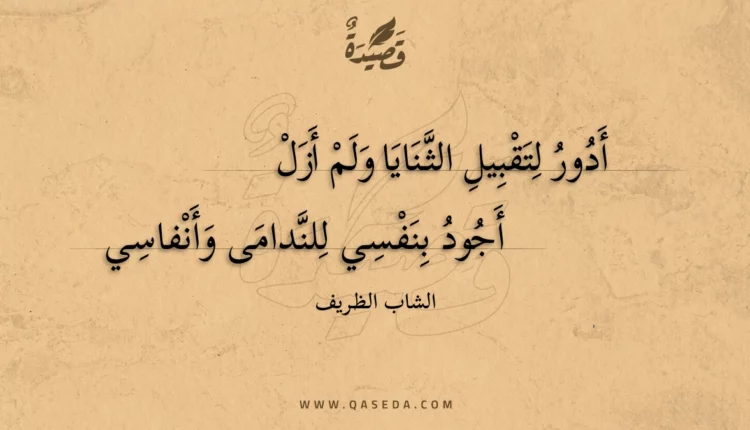 قَصِيْدَةٌ
أَدُورُ لِتَقْبِيلِ الثَّنَايَا وَلَمْ أَزَلْ
أَجُودُ بِنَفْسِي لِلنَّدامَى وَأَنْفاسِي
الشاب الظريف
WWW.QASEDA.COM